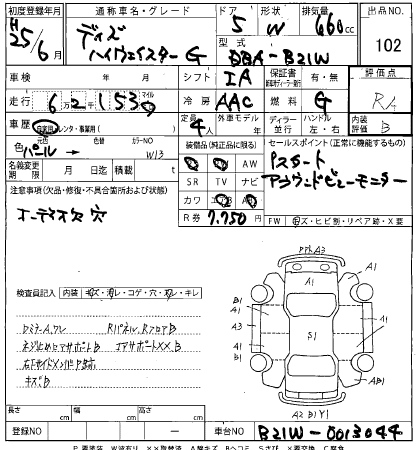 初度登録年月 通称車名・グレード ドア 形状 排気量 出品NO.
H25/6月 ディズ ハイウェイスター G 5 W 660cc 102
型式 DBA-B21W
車検 年 月 シフト IA 保証書 有・無 評価点
走行 6万2千153 マイル 冷房 AAC 燃料 G RA
車歴 自家用 レンタ・事業用( ) 定員 4人 外車モデル 年 ディーラー 並行 ハンドル 左・右 内装 B
色 パール → 色替 カラーNO W13
装備品(純正品に限る) セールスポイント(正常に機能するもの)
名義変更期限 月 日迄 積載量 t
AW
SR TV ナビ
カワ エアB
R券 7,750円
Pスタート
アラウンドビューモニター
FW キズ・ヒビ割・リペア跡・X要
注意事項(欠品・修復・不具合箇所および状態)
オーディオ欠 穴
検査員記入 内装 キズ・汚レ・コゲ・穴・スレ・キレ
Rパネル RフロアB
ネジ止めロアサポートB コアサポートXX B
キズB
A1
A1
B1
A3
A1
B1
S1
A1
A1
AB1
A2 B1 Y1
長さ cm 幅 cm 高さ cm
登録NO 車台NO B21W-0013044